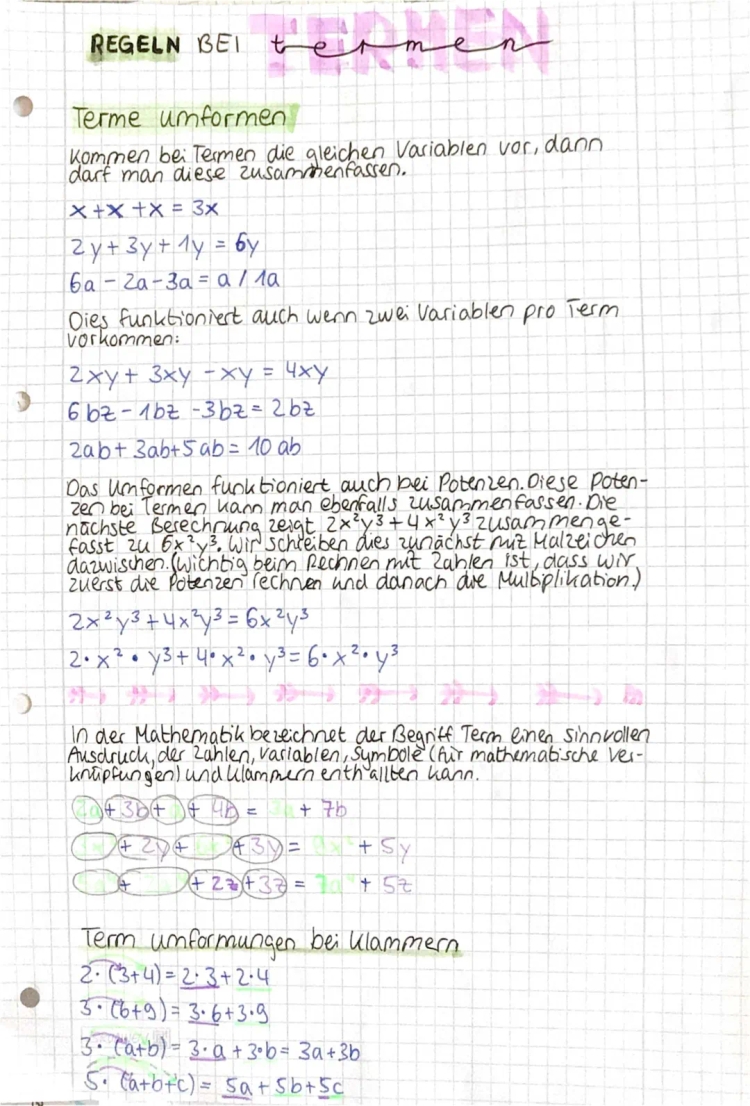 REGELN BEI termen
TERMEN
Terme umformen
Kommen bei Termen die gleichen Variablen vor, dann
darf man diese zusammenfassen.
x+x+x = 3x
2y+3y+1y = 6y
6a - 2a - 3a = a / 1a
Dies funktioniert auch wenn zwei Variablen pro Term
vorkommen:
2xy + 3xy - xy = 4xy
6bz - 1bz - 3bz = 2bz
2ab + 3ab + 5ab = 10ab
Das Umformen funktioniert auch bei Potenzen. Diese Poten-
zen bei Termen kann man ebenfalls zusammenfassen. Die
nächste Berechnung zeigt 2x²y³ + 4x²y³ zusammenge-
fasst zu 6x²y³. Wir schreiben dies zunächst mit Malzeichen
dazwischen. (Wichtig beim Rechnen mit Zahlen ist, dass wir
zuerst die Potenzen rechnen und danach die Multiplikation.)
2x²y³ + 4x²y³ = 6x²y³
2·x²·y³ + 4·x²·y³ = 6·x²·y³
In der Mathematik bezeichnet der Begriff Term einen sinnvollen
Ausdruck, der Zahlen, Variablen, Symbole (für mathematische Ver-
knüpfungen) und Klammern enthallten kann.
2a + 3b + + 4b = 3a + 7b
+ 2y + + 3y = + 5y
+ + 2z + 3z = + 5z
Term umformungen bei Klammern
2·(3+4) = 2·3 + 2·4
3·(6+9) = 3·6 + 3·9
3·(a+b) = 3·a + 3·b = 3a+3b
5·(a+b+c) = 5a + 5b + 5c